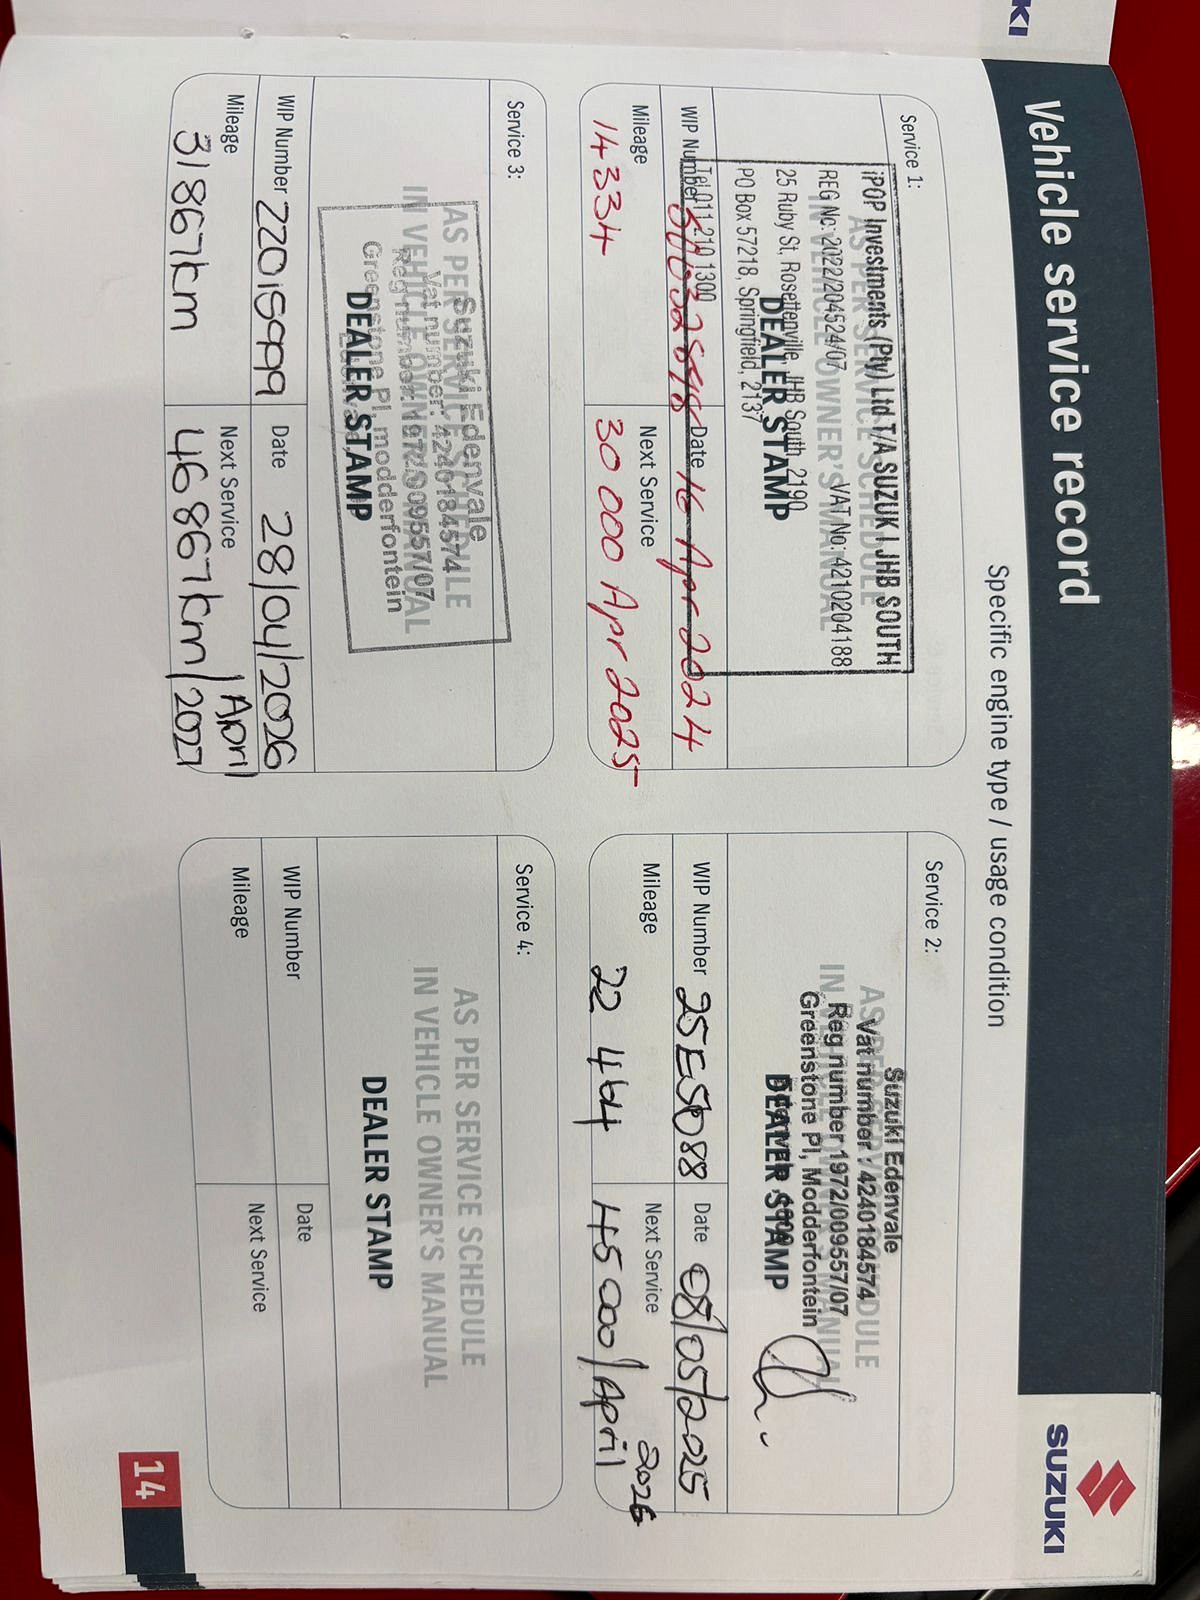 KI
Vehicle service record
SUZUKI
Specific engine type / usage condition
Service 1:
iPOP Investments (Pty) Ltd T/A SUZUKI JHB SOUTH
AS PER SERVICE SCHEDULE
REG No: 2022/204524/07 VAT No: 4210204188
IN VEHICLE OWNER'S MANUAL
25 Ruby St, Rosettenville, JHB South, 2190
DEALER STAMP
PO Box 57218, Springfield, 2137
Tel 011 210 1300
WIP Number
Date 16 Apr 2024
Mileage
14334
Next Service
30 000 Apr 2025
Service 2:
Suzuki Edenvale
AS PER SERVICE SCHEDULE
Vat number : 4240184574
Reg number 1972/009557/07
IN VEHICLE OWNER'S MANUAL
Greenstone Pl, Modderfontein
DEALER STAMP
WIP Number
Date 08/05/2025
Mileage
22 464
Next Service
45 000/April 2026
Service 3:
Suzuki Edenvale
AS PER SERVICE SCHEDULE
Vat number: 4240184574
IN VEHICLE OWNER'S MANUAL
Reg number: 1972/009557/07
Greenstone Pl, modderfontein
DEALER STAMP
WIP Number
Date 28/04/2026
Mileage
31867km
Next Service
46867km/April/2027
Service 4:
AS PER SERVICE SCHEDULE
IN VEHICLE OWNER'S MANUAL
DEALER STAMP
WIP Number
Date
Mileage
Next Service
14